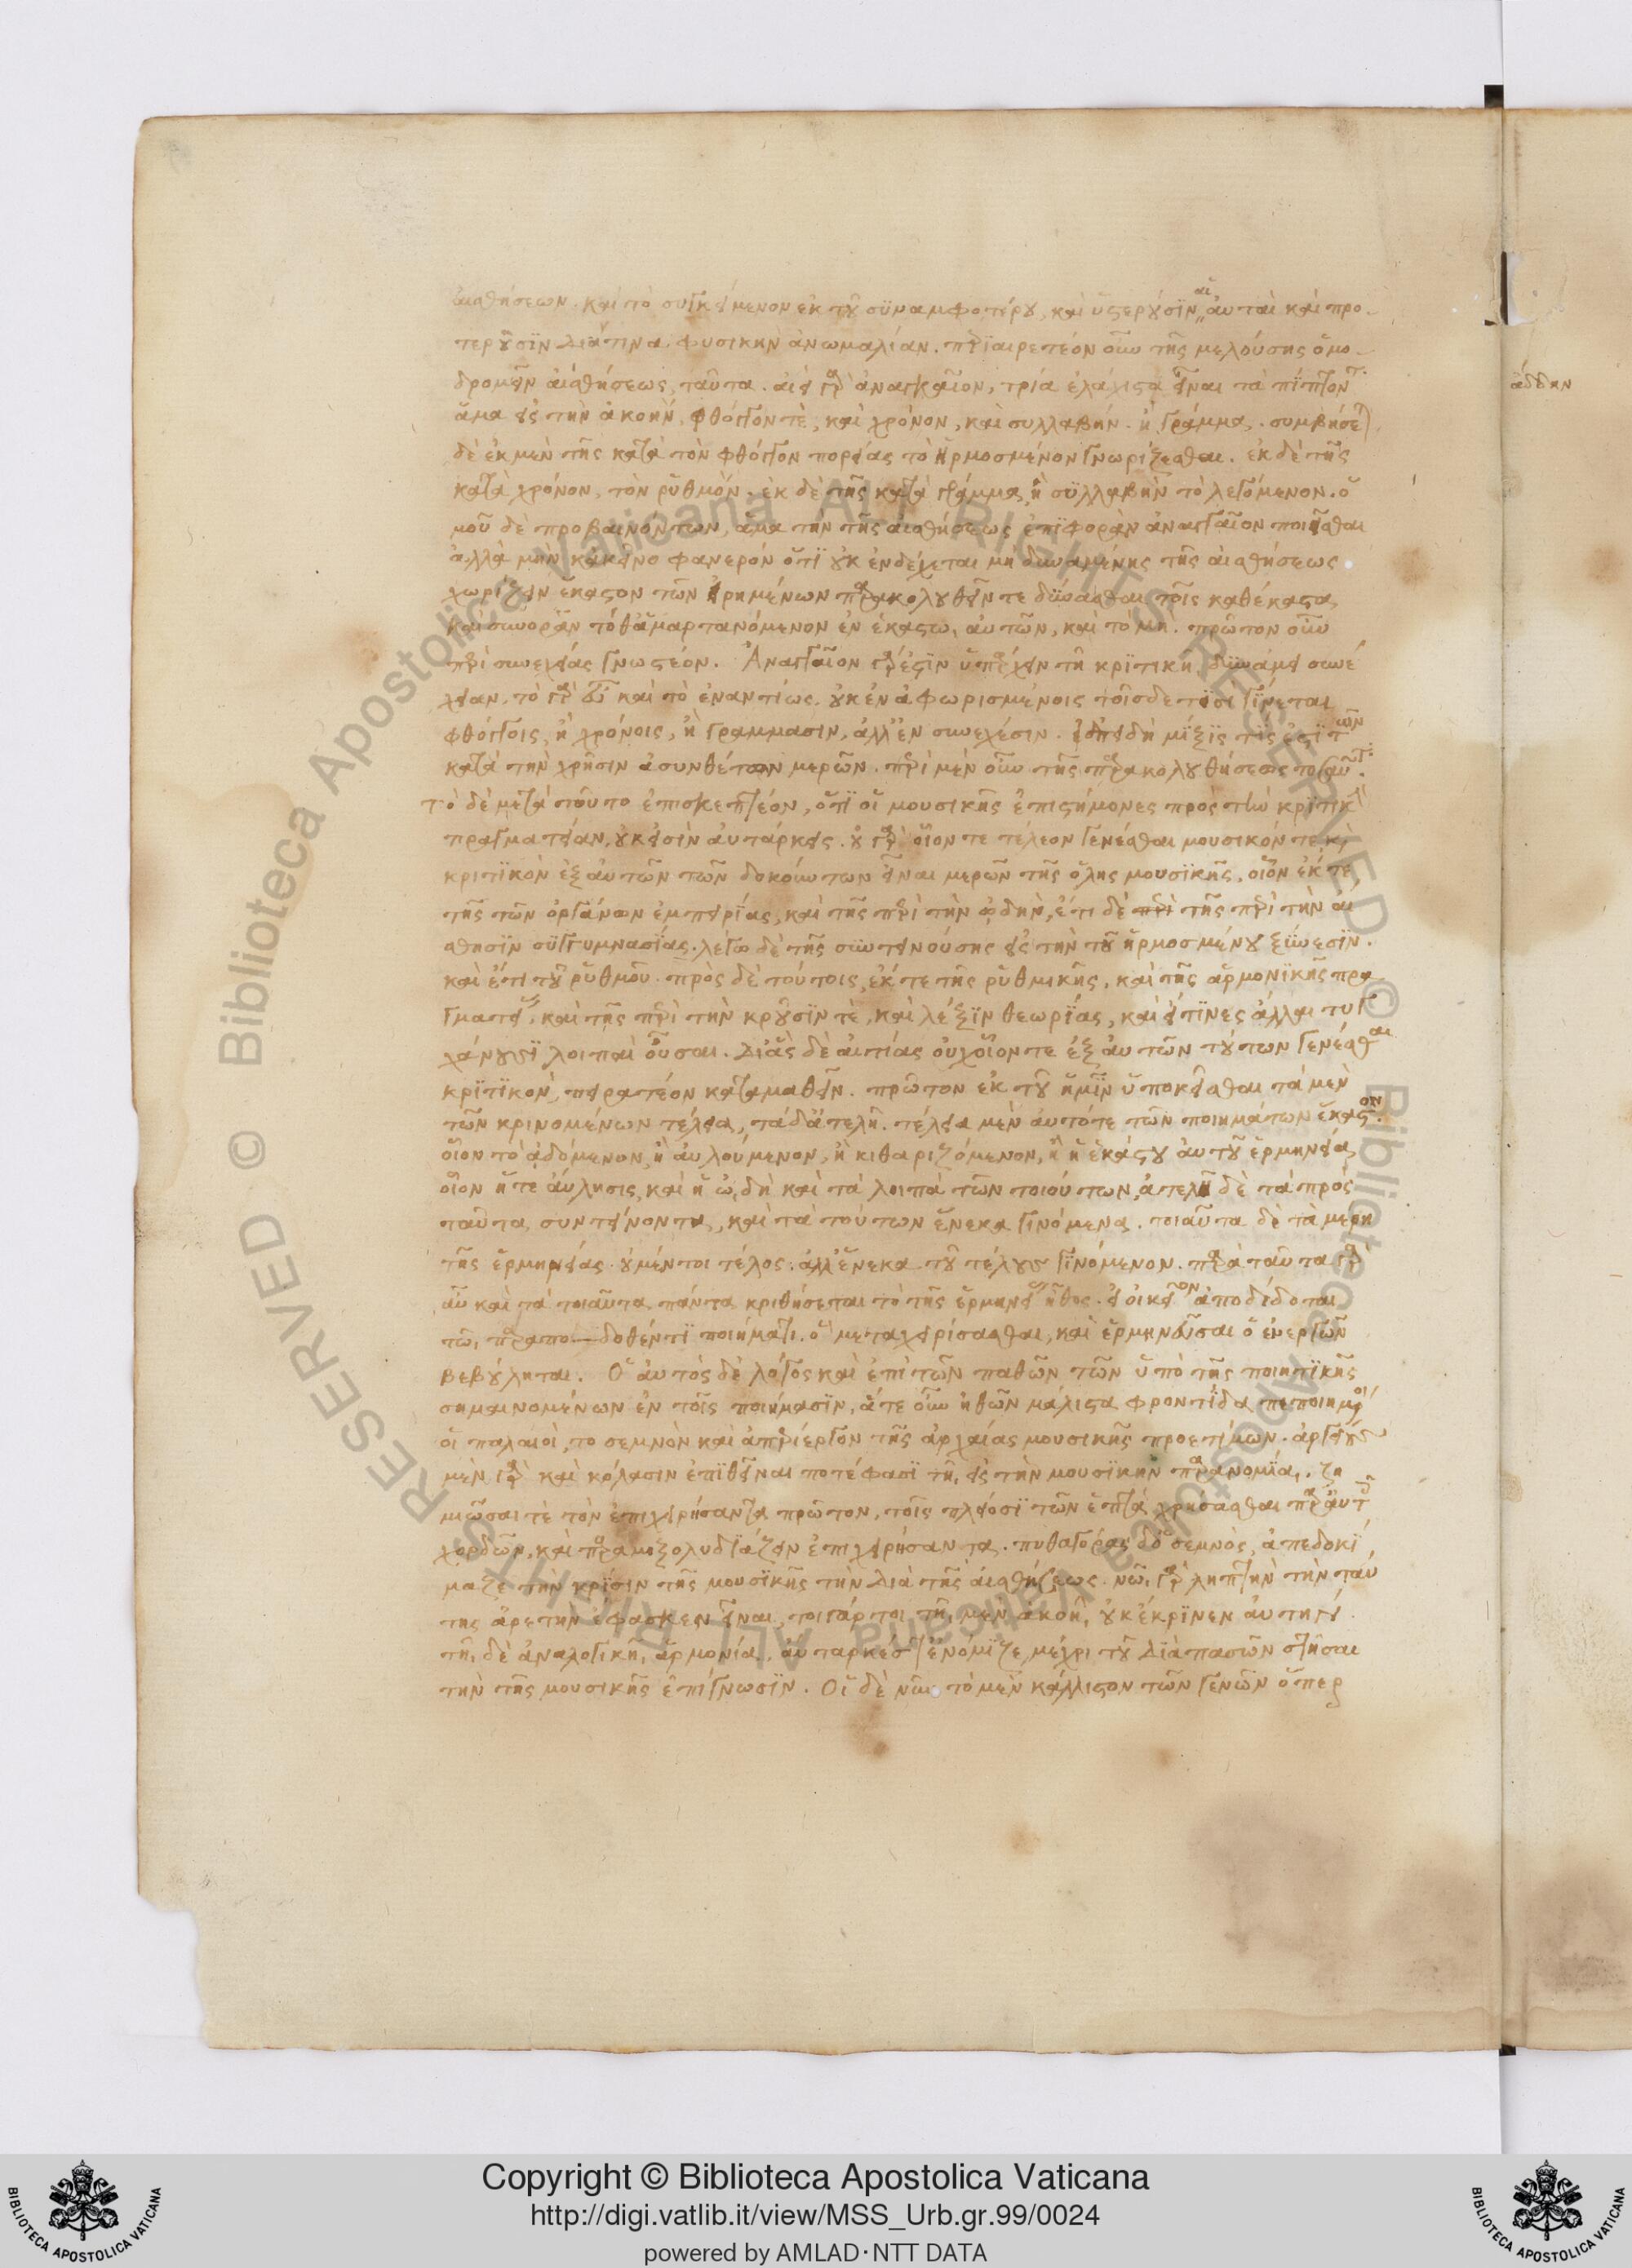 αἰσθήσεων. καὶ τὸ συγκείμενον ἐκ τοῦ συναμφοτέρου, καὶ ὑστεροῦσιν αἱ αὐταὶ καὶ προ
τεροῦσιν διά τινα φυσικὴν ἀνωμαλίαν. περιαιρετέον οὖν τῆς μελούσης ὁμο
δρομεῖν αἰσθήσεως, ταῦτα. ἀεὶ γὰρ ἀναγκαῖον, τρία ἐλάχιστα εἶναι τὰ πίπτοντ.
ἅμα εἰς τὴν ἀκοὴν, φθόγγον τὲ, καὶ χρόνον, καὶ συλλαβὴν. ἢ γράμμα. συμβήσε
δὲ ἐκ μὲν τῆς κατὰ τὸν φθόγγον πορείας τὸ ἡρμοσμένον γνωρίζεσθαι. ἐκ δὲ τῆς
κατὰ χρόνον, τὸν ῥυθμόν. ἐκ δὲ τῆς κατὰ γράμμα, ἢ συλλαβὴν τὸ λεγόμενον. ὁ
μοῦ δὲ προβαινόντων, ἅμα τὴν τῆς αἰσθήσεως ἐπιφορὰν ἀναγκαῖον ποιεῖσθαι
ἀλλὰ μὴν κἀκεῖνο φανερόν ὅτι οὐκ ἐνδέχεται μὴ δυναμένης τῆς αἰσθήσεως
χωρίζειν ἕκαστον τῶν εἰρημένων παρακολουθεῖν τε δύνασθαι τοῖς καθέκαστα
καὶ συνορᾶν τό θ' ἁμαρτανόμενον ἐν ἑκάστω, αὐτῶν, καὶ τὸ μὴ. πρῶτον οὖν
περὶ συνεχείας γνωστέον. Ἀναγκαῖον γάρ ἐστιν ὑπάρχειν τῆ κριτικῆ δυνάμει συνέ
χειαν. τὸ γὰρ εὖ καὶ τὸ ἐναντίως. οὐκ ἐν ἀφωρισμένοις τοῖσδε τισι γίνεται
φθόγγοις, ἢ χρόνοις, ἢ γράμμασιν, ἀλλ' ἐν συνεχέσιν. ἐπειδὴ μίξις τίς ἐστι τῶν
κατὰ τὴν χρῆσιν ἀσυνθέτων μερῶν. περὶ μὲν οὖν τῆς παρακολουθήσεως τοσαῦτ:
Τὸ δὲ μετὰ τοῦτο ἐπισκεπτέον, ὅτι οἱ μουσικῆς ἐπιστήμονες πρὸς τὴν κριτικ
πραγματείαν, οὐκ εἰσὶν αὐτάρκεις. οὐ γὰρ οἷον τε τέλεον γενέσθαι μουσικόν τε κὶ
κριτικὸν ἐξ αὐτῶν τῶν δοκούντων εἶναι μερῶν τῆς ὅλης μουσικῆς, οἷον ἐκ τὲ
τῆς τῶν ὀργάνων ἐμπειρίας, καὶ τῆς περὶ τὴν ᾠδὴν, ἔτι δὲ περὶ τῆς περὶ τὴν αἴ
σθησιν συγγυμνασίας. λέγω δὲ τῆς συντεινούσης εἰς τὴν τοῦ ἡρμοσμένου ξύνεσιν.
καὶ ἔτι τοῦ ῥυθμοῦ. πρὸς δὲ τούτοις, ἔκ τε τῆς ῥυθμικῆς, καὶ τῆς ἁρμονικῆς πρα
γματείας, καὶ τῆς περὶ τὴν κροῦσίν τὲ, καὶ λέξιν θεωρίας, καὶ εἴ τινες ἄλλαι τυγ
χάνουσι λοιπαὶ οὖσαι. Δι' ἃς δὲ αἰτίας οὐχ οἷον τε ἐξ αὐτῶν τούτων γενέσθαι
κριτικὸν, πειρατέον καταμαθεῖν. πρῶτον ἐκ τοῦ ἡμῖν ὑποκεῖσθαι τὰ μὲν
τῶν κρινομένων τέλεια, τὰ δ' ἀτελῆ. τέλεια μὲν αὐτό τε τῶν ποιημάτων ἕκαστον.
οἷον τὸ ἀδόμενον, ἢ αὐλούμενον, ἢ κιθαριζόμενον, ἢ ἡ ἑκάστου αὐτοῦ ἑρμηνεία,
οἷον ἥ τε αὔλησις, καὶ ἡ ὠ,δὴ καὶ τὰ λοιπὰ τῶν τοιούτων, ἀτελῆ δὲ τὰ πρὸς
ταῦτα συντείνοντα, καὶ τὰ τούτων ἕνεκα γινόμενα. τοιαῦτα δὲ τὰ μέρη
τῆς ἑρμηνείας. οὐ μέντοι τέλος. ἀλλ' ἕνεκα τοῦ τέλους γινόμενον. παρὰ ταῦτα γὰρ
αὖ καὶ τὰ τοιαῦτα πάντα κριθήσεται τὸ τῆς ἑρμηνείας ἦθος. εἰ οἰκεῖον ἀποδίδοται
τῶ, παραποδοθέντι ποιήματι. ὃ μεταχειρίσασθαι, καὶ ἑρμηνεῦσαι ὁ ἐνεργῶν
βεβούληται. Ὁ αὐτὸς δὲ λόγος καὶ ἐπὶ τῶν παθῶν τῶν ὑπὸ τῆς ποιητικῆς
σημαινομένων ἐν τοῖς ποιήμασιν, ἅτε οὖν ἠθῶν μάλιστα φροντίδα πεποιημένοι
οἱ παλαιοὶ, το σεμνὸν καὶ ἀπερίεργον τῆς ἀρχαίας μουσικῆς προετίμων. ἀργείους
μὲν γὰρ καὶ κόλασιν ἐπιθεῖναι ποτέ φασι τῆ, εἰς τὴν μουσικην παρανομία,. ζη
μιῶσαί τὲ τὸν ἐπιχειρήσαντα πρῶτον, τοῖς πλείοσι τῶν ἑπτὰ χρήσασθαι παρ' αὐτ
χορδῶν, καὶ παραμιξολυδιάζειν ἐπιχειρήσαντα. πυθαγόρας δ' ὁ σεμνὸς, ἀπεδοκί
μαζε τὴν κρίσιν τῆς μουσικῆς τὴν διὰ τῆς αἰσθήσεως. νῶ, γὰρ ληπτὴν τὴν ταύ
της ἀρετὴν ἔφασκεν εἶναι, τοιγάρτοι τῆ, μὲν ἀκοῆ, οὐκ ἔκρινεν αὐτήν.
τῆ, δὲ ἀναλογικῆ, ἁρμονία,. αὔταρκές τ' ἐνόμιζε, μέχρι τοῦ διὰ πασῶν στῆσαι
τὴν τῆς μουσικῆς ἐπίγνωσιν. Οἱ δὲ νῦν τὸ μὲν κάλλιστον τῶν γενῶν ὅπερ
ἄδδην
Copyright © Biblioteca Apostolica Vaticana
http://digi.vatlib.it/view/MSS_Urb.gr.99/0024
powered by AMLAD·NTT DATA
BIBLIOTECA APOSTOLICA VATICANA
BIBLIOTECA APOSTOLICA VATICANA
© Biblioteca Apostolica Vaticana ALL RIGHTS RESERVED
© Biblioteca Apostolica Vaticana ALL RIGHTS RESERVED